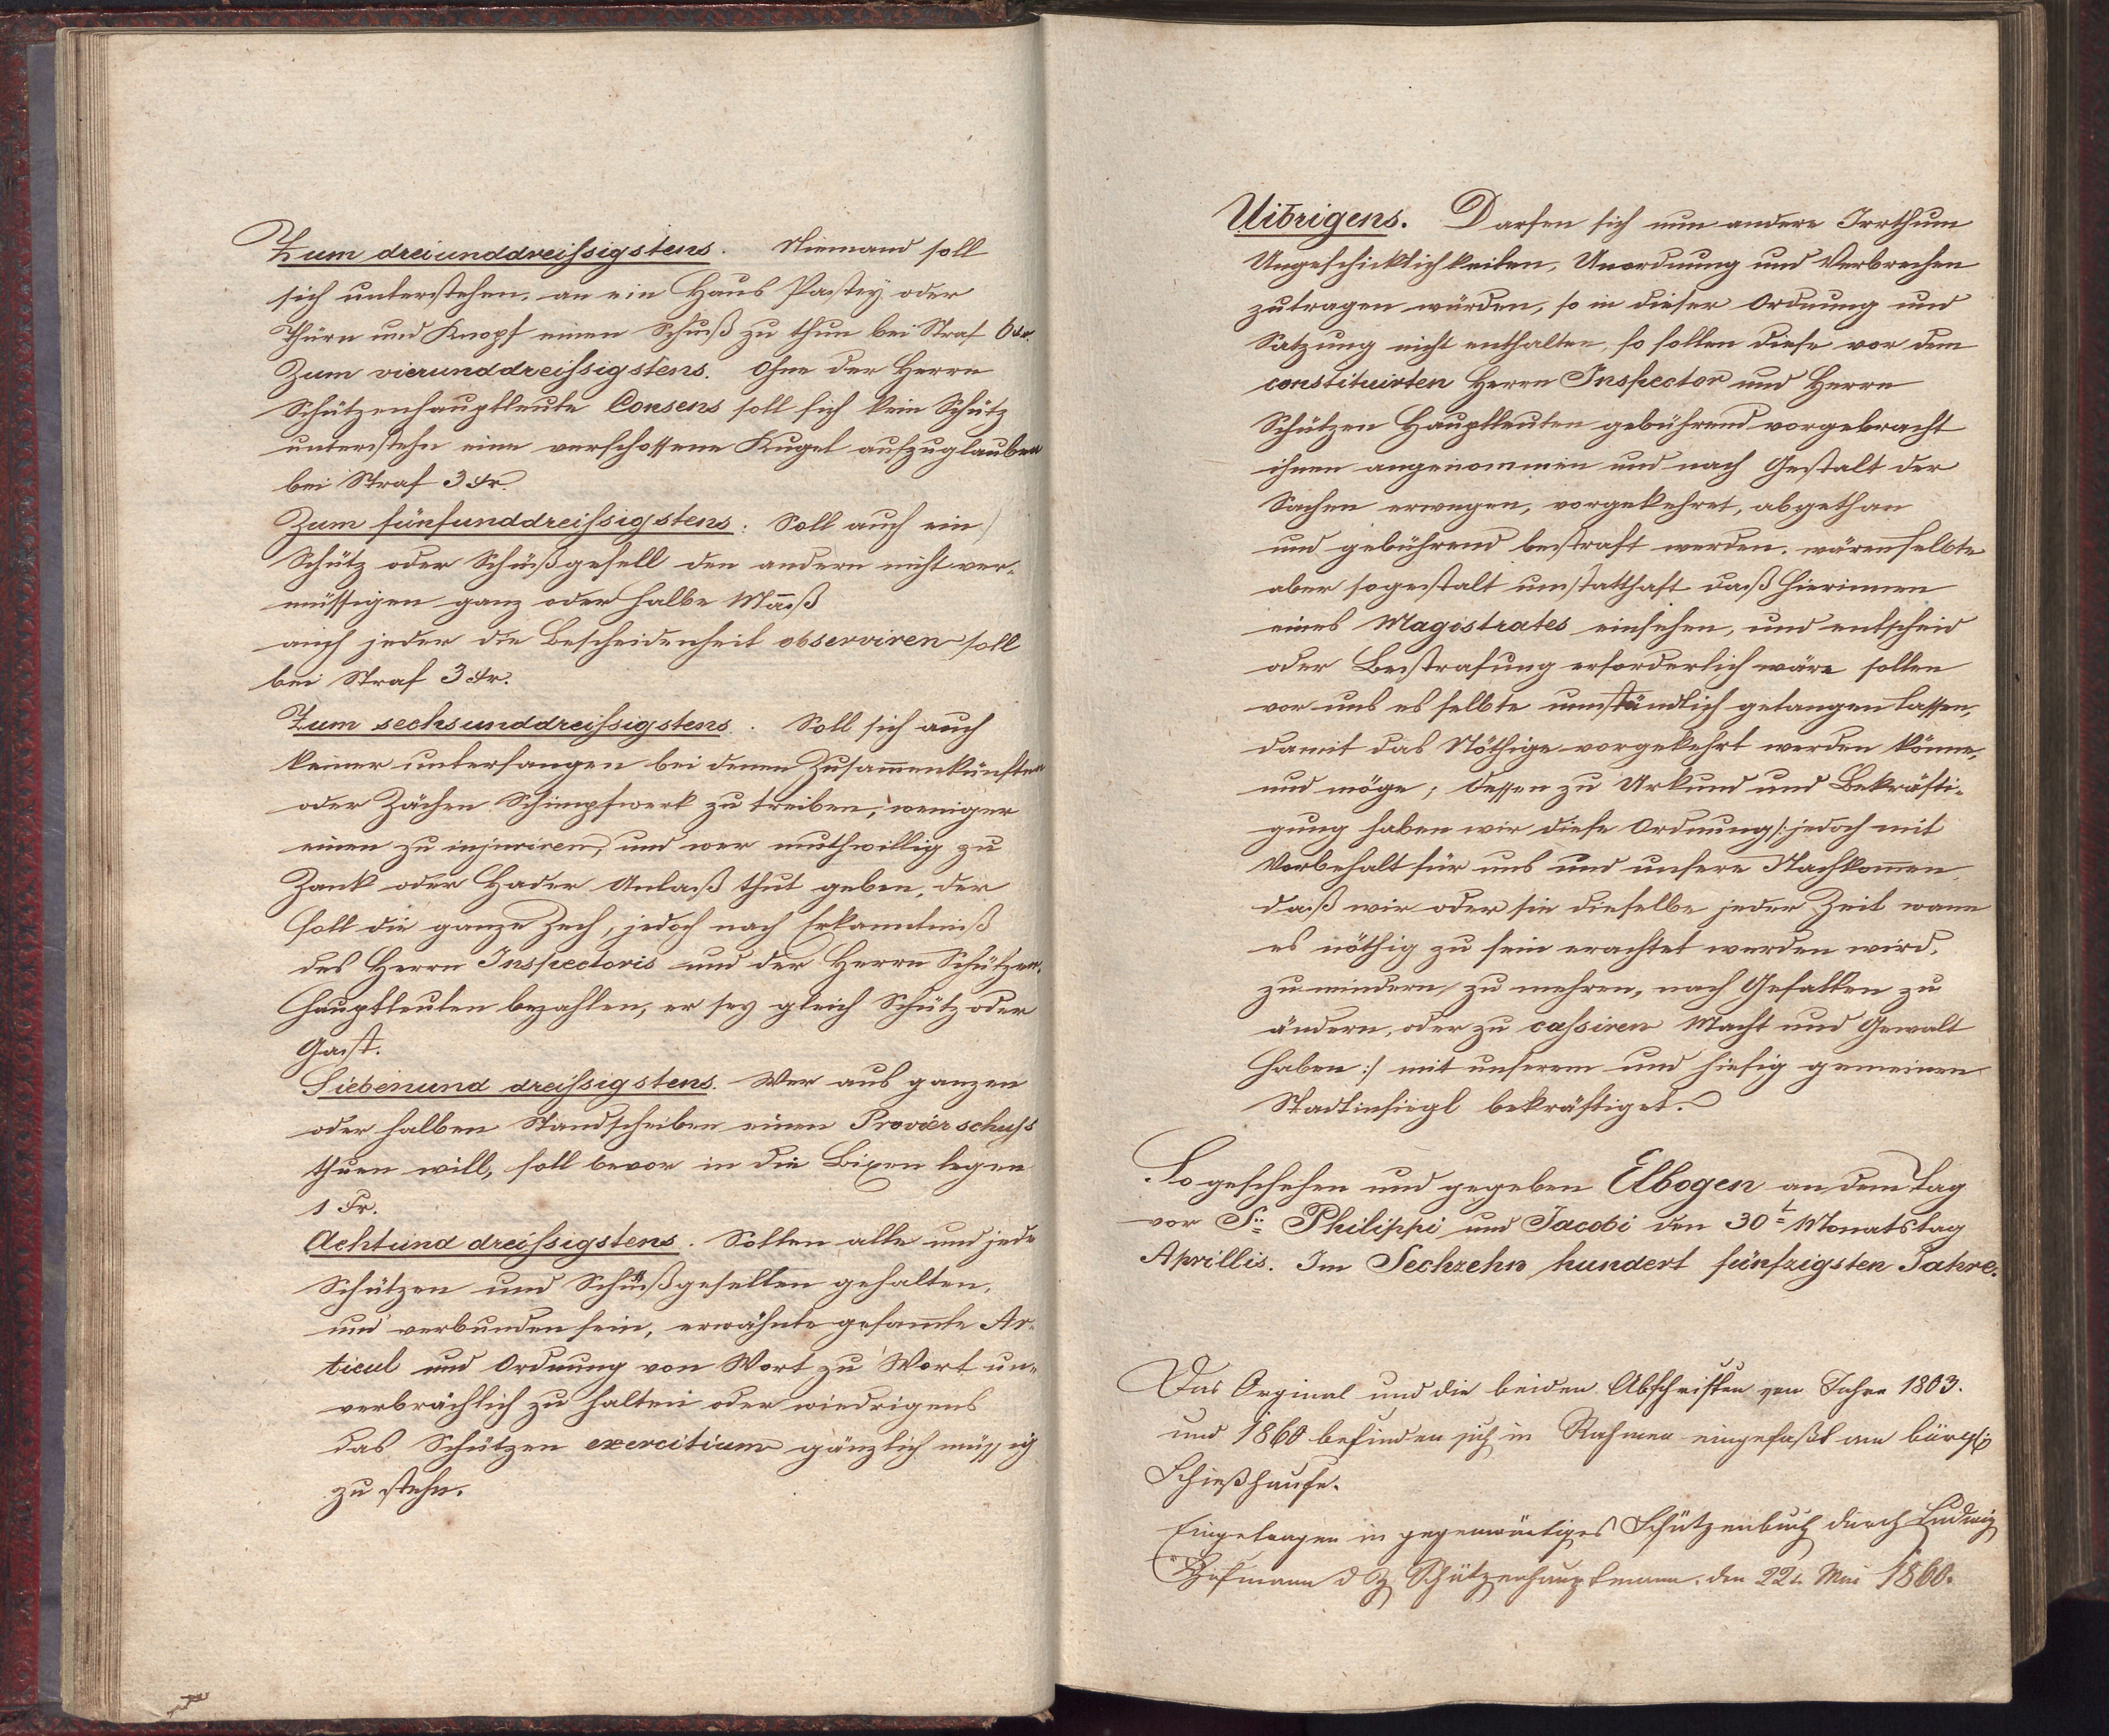 Zum dreiunddreißigstens. Niemand soll
sich unterstehen, an ein Haus Pastey oder
Thürn und Knopf einen Schuß zu thun bei Straf 6 kr.
Zum vierunddreißigstens. Ohne der Herrn
Schützenhauptleute Consens soll sich kein Schütz
unterstehn eine verschossene Kugel aufzuglauben
bei Straf 3 kr.
Zum fünfunddreißigstens: Soll auch ein
Schütz oder Schüßgesell den andern nicht ver-
müssigen ganz oder halbe Maaß
auch jeder die Bescheidenheit observiren soll
bei Straf 3 kr.
Zum sechsunddreißigstens. Soll sich auch
keiner unterfangen bei denen Zusam̄enkünften
oder Zächen Schimpfwerk zu treiben, weniger
einen zu injuriren, und wer muthwillig zu
Zank oder Hader Anlaß thut geben, der
soll die ganze Zech, jedoch nach Erkanntniß
des Herrn Inspectoris und der Herrn Schützen-
hauptleuten bezahlen, er sey gleich Schütz oder
Gast.
Siebenund dreißigstens. Wer aus ganzen
oder halben Standscheiben einen Provier schuß
thuen will, soll bevor in die Bixen legen
1 Fr.
Achtund dreißigstens. Sollen alle und jede
Schützen und Schüßgesellen gehalten,
und verbunden sein, erwähnte gesam̄te Ar-
ticul und Ordnung von Wort zu Wort un-
verbrächlich zu halten oder wiedrigens
das Schützen exercitium gänzlich müssig
zu stehn.
Uibrigens. Darfen sich nun andere Irrthum
Ungeschicklichkeiten, Unordnung und Verbrechen
zutragen würden, so in dieser Ordnung und
Satzung nicht enthalten, so sollen diese vor dem
constituirten Herrn Inspector und Herrn
Schützen Hauptleuten gebührend vorgebracht
ihnen angenommen und nach Gestalt der
Sachen erwegen, vorgekehret, abgethan
und gebührend bestraft werden. wären selbte
aber sogestalt umstatthaft daß hierinnen
eines Magistrates einsehen, und entscheid
oder Bestrafung erforderlich wäre sollen
vor uns es selbte umständlich gelangen lassen,
damit das Nöthige vorgekehrt werden könne,
und möge; dessen zu Urkund und Bekräfti-
gung haben wir diese Ordnung /: jedoch mit
Vorbehalt für uns und unsere Nachkom̄en,
daß wir oder sie dieselbe jeder Zeit wann
es nöthig zu sein erachtet werden wird,
zu mindern, zu mehren, nach Gefallen zu
ändern, oder zu cassiren Macht und Gewalt
haben :/ mit unserem und hiesig gemeinen
Stadtinsiegl bekräftiget.
So geschehen und gegeben Elbogen an dem Tag
vor St. Philippi und Jacobi den 30t Monatstag
Aprillis. Im Sechzehn hundert fünfzigsten Jahre.
Das Orginal und die beiden Abschriften von Jahre 1803.
und 1860 befinden sich in Rahmen eingefaßt am bürgl
Schießhause.
Eingetragen in gegenwärtiges Schützenbuch durch Ludwig
Hofmann d Z Schützenhauptmann. den 22t. Mai 1860.